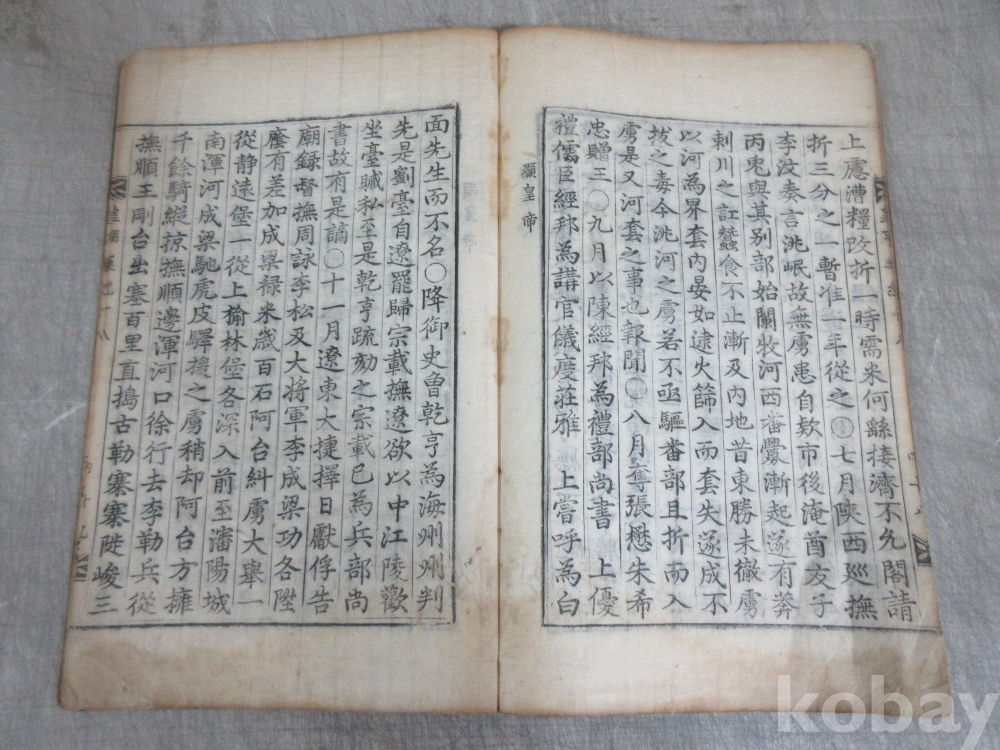 上慮漕糧改折一時需米何繇接濟不允閣請
折三分之一暫准一年從之 七月陝西巡撫
李汶奏言洮岷故無虜患自欵市後淹酋友子
丙兎與其別部始闌牧河西番釁漸起遂有莽
剌川之訌蠶食不止漸及內地昔東勝未徹虜
以河為界套內晏如逮火篩入而套失遂成不
拔之毒今洮河之虜若不亟驅番部且折而入
虜是又河套之事也報聞 八月奪張懋朱希
忠贈王○九月以陳經邦為禮部尚書 上優
禮儒臣經邦為講官儀度莊雅 上嘗呼為白
顯皇帝
面先生而不名○降御史曽乾亨為海州州判
先是劉臺自遼罷歸宗載撫遼欲以中江陵歡
坐臺贓私至是乾亨疏劾之宗載已為兵部尚
書故有是謫○十一月遼東大捷擇日獻俘告
廟錄督撫周詠李松及大將軍李成梁功各陞
廕有差加成梁禄米歲百石阿台糾虜大舉一
從静遠堡一從上榆林堡各深入前至瀋陽城
南渾河成梁馳虎皮驛援之虜稍却阿台方擁
千餘騎縱掠撫順邊渾河口徐行去李勒兵從
撫順王剛台出塞百里直搗古勒寨寨陡峻三
kobay